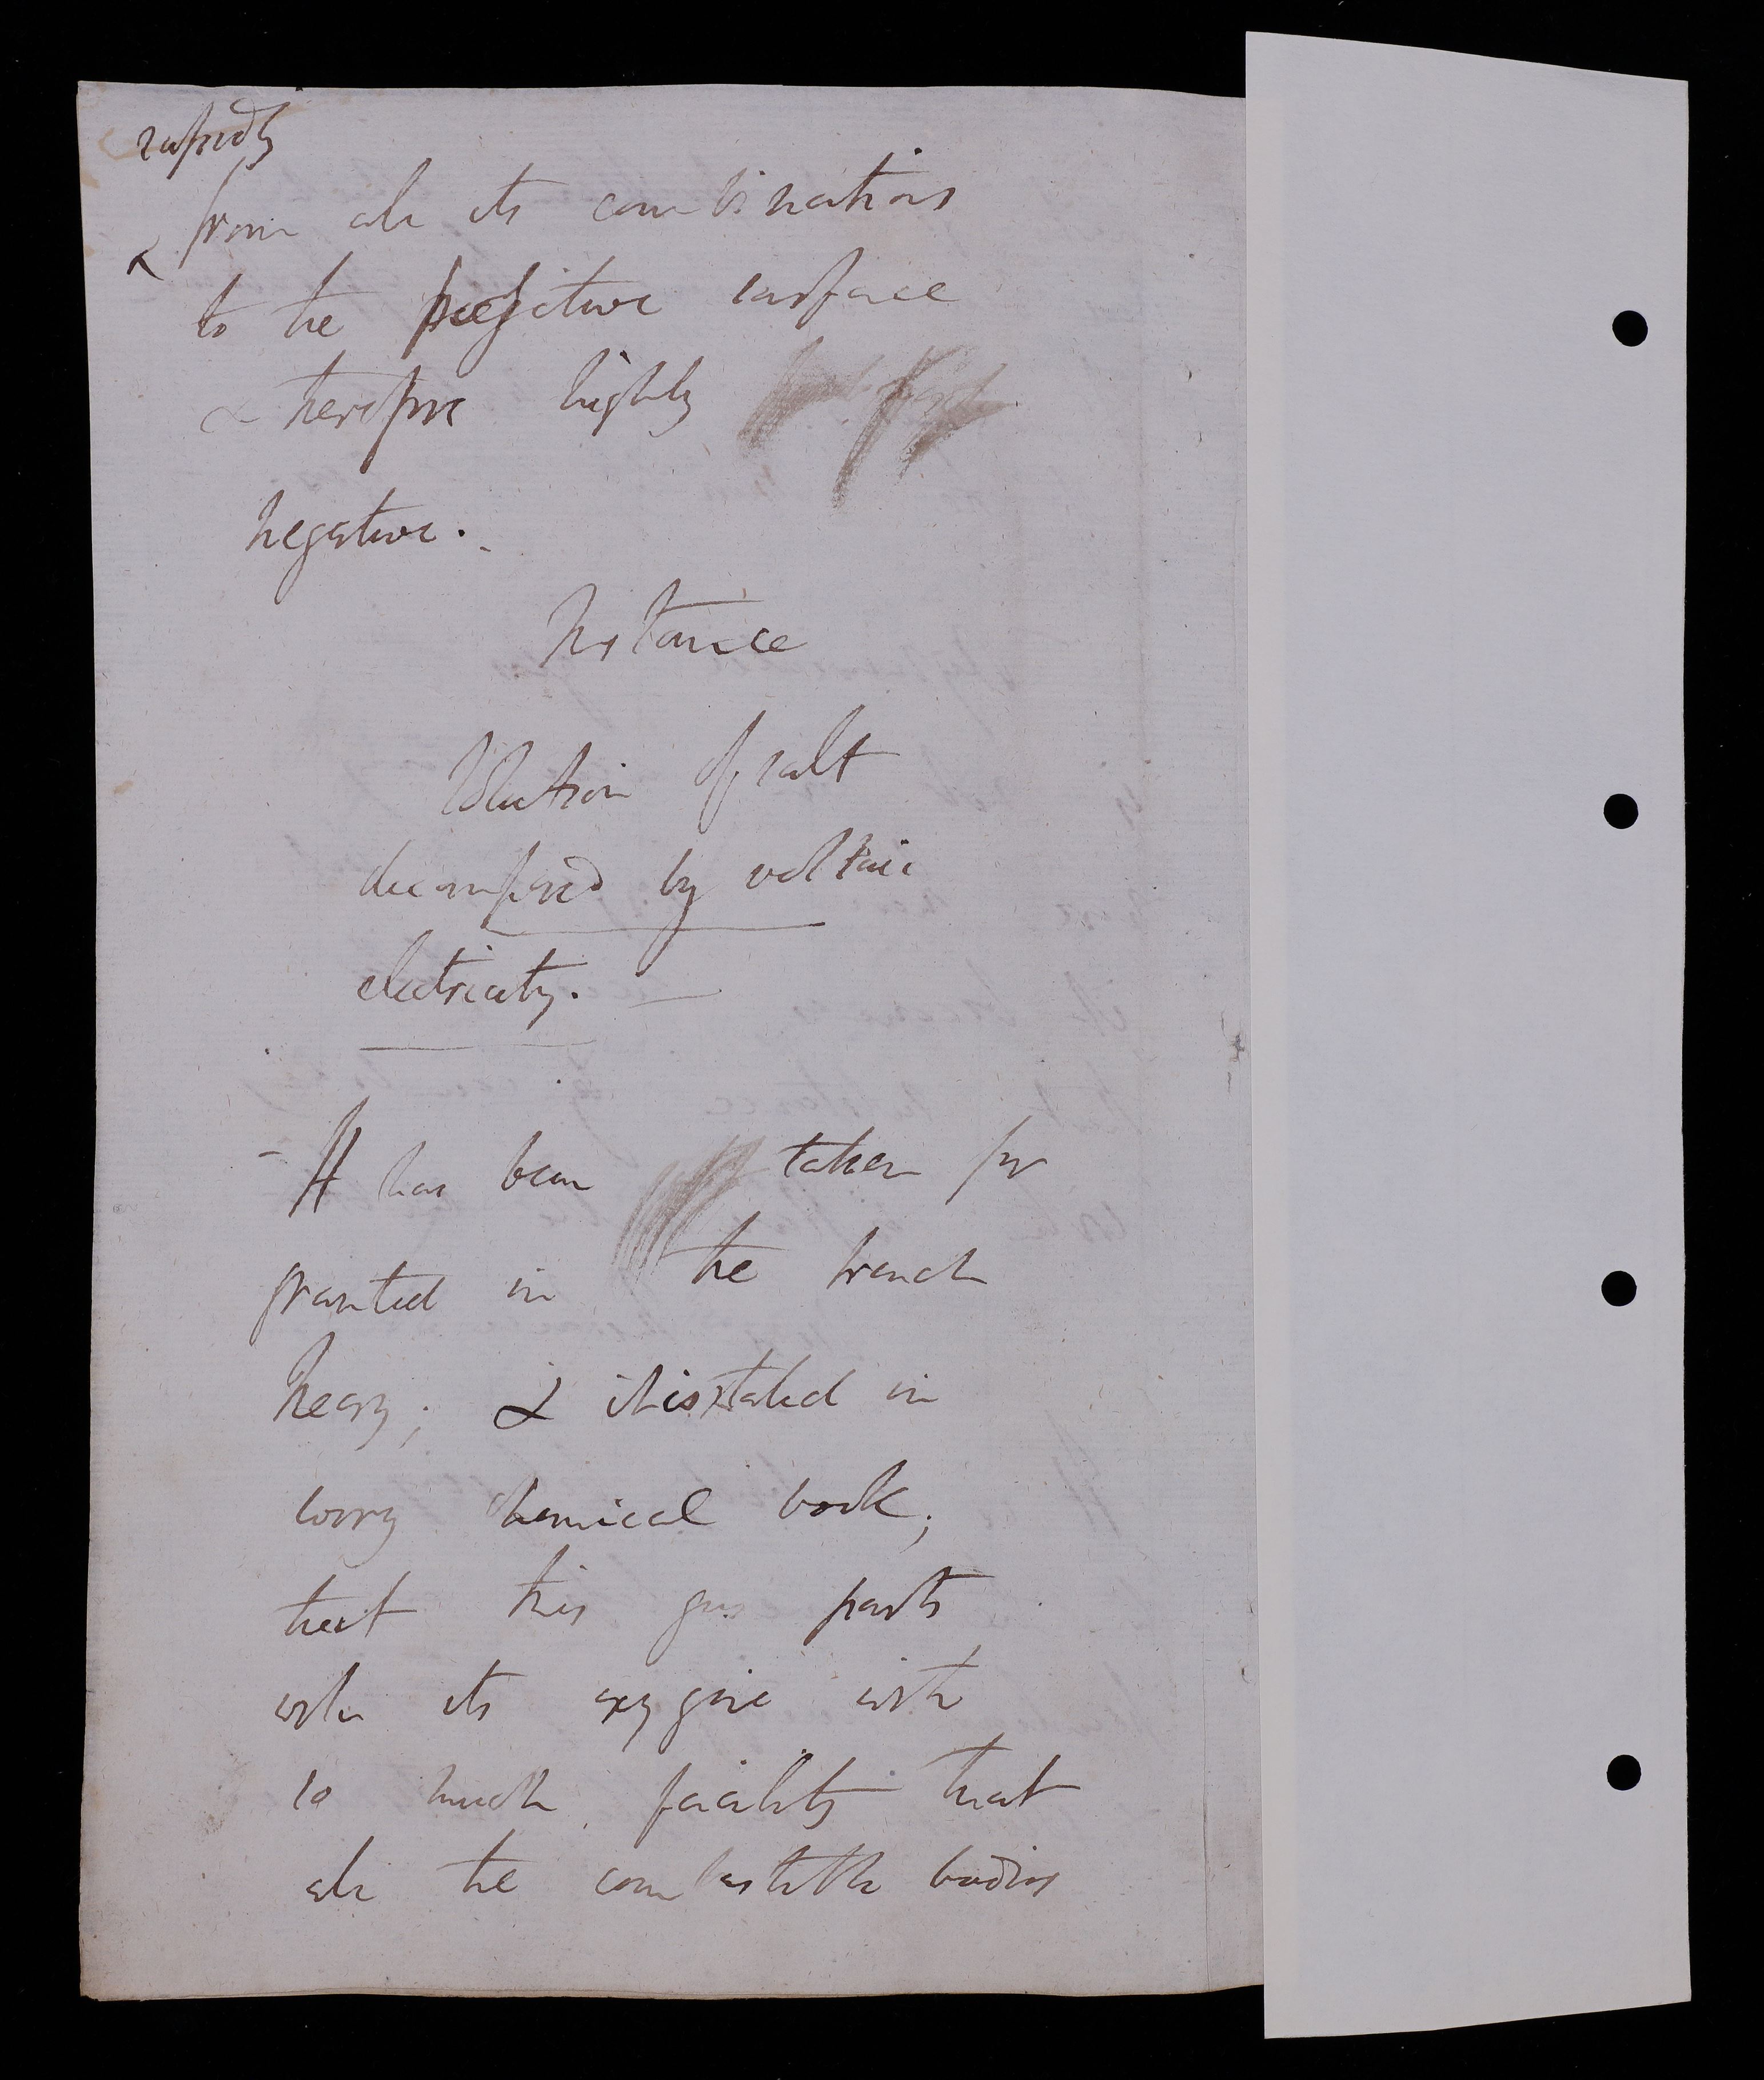 rapidly
from all its combinations
to the positive surface
& therefore highly
negative.
Instance
Solution of salt
decomposed by voltaic
electricity. —
- It has been taken for
granted in the french
theory; & it is stated in
every chemical book;
that this gas parts
with its oxygene with
so much facility that
all the combustible bodies